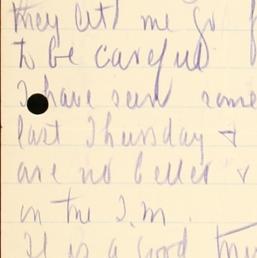 they let me go
to be careful
I have seen some
last Thursday +
are no better +
in the I.M.
It is a good